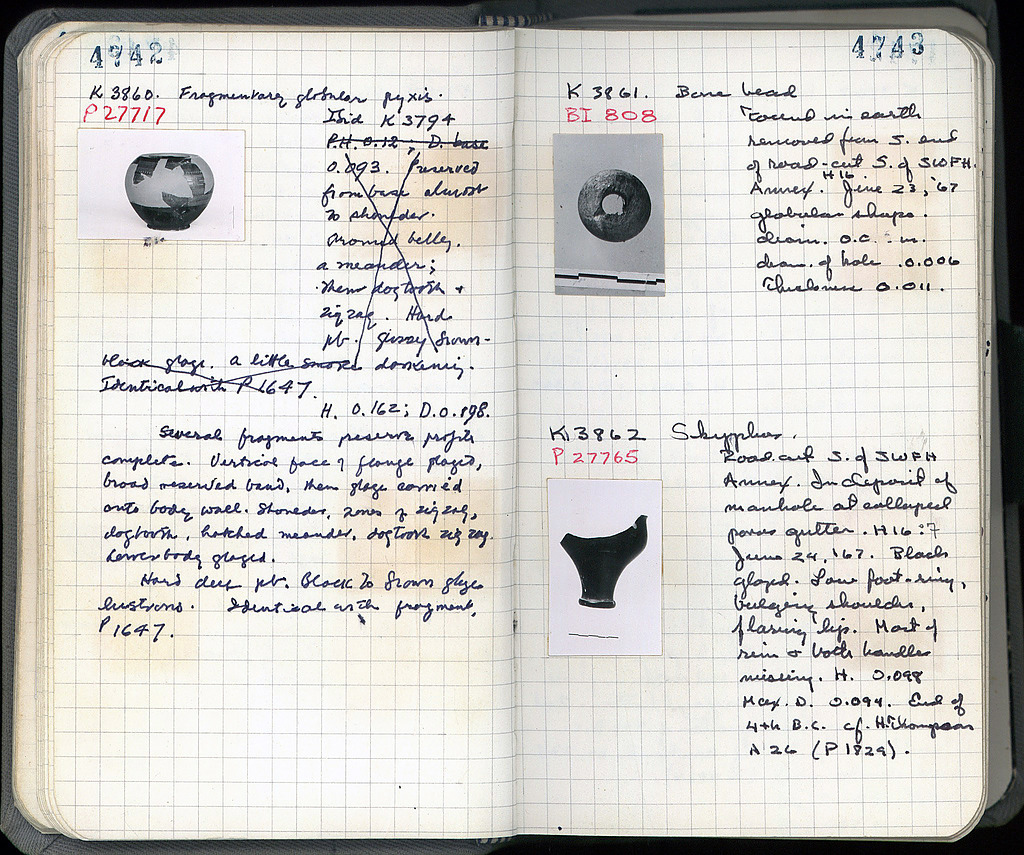 4742
K 3860. Fragmentary globular pyxis.
P 27717
Ibid K 3794
P.H. 0.12; D. base
0.093. Preserved
from base almost
to shoulder.
Around belly,
a meander;
then dogtooth +
zigzag. Hard
pb. glossy brown-
black glaze. a little smoke darkening.
Identical with P 1647.
H. 0.162; D. 0.198.
Several fragments preserve profile
complete. Vertical face of flange glazed,
broad reserved band, then glaze carried
onto body wall. Shoulder, zones of zigzag,
dogtooth, hatched meander, dogtooth zigzag.
Lower body glazed.
Hard deep pb. Black to brown glaze
lustrous. Identical with fragment,
P 1647.
4743
K 3861. Bone bead
BI 808
Found in earth
removed from S. end
of road-cut S. of SWFH.
H16.
Annex. June 23, '67
globular shape.
diam. 0.0 m.
diam. of hole .0.006
Thickness 0.011.
K 3862 Skyphos.
P 27765
Road-cut S. of SWFH
Annex. In deposit of
manhole at collapsed
poros gutter. H16:7
June 24, '67. Black
glazed. Low foot-ring,
bulging shoulder,
flaring lip. Most of
rim & both handles
missing. H. 0.098
Max. D. 0.094. End of
4th B.C. cf. H. Thompson
A 26 (P 1829).